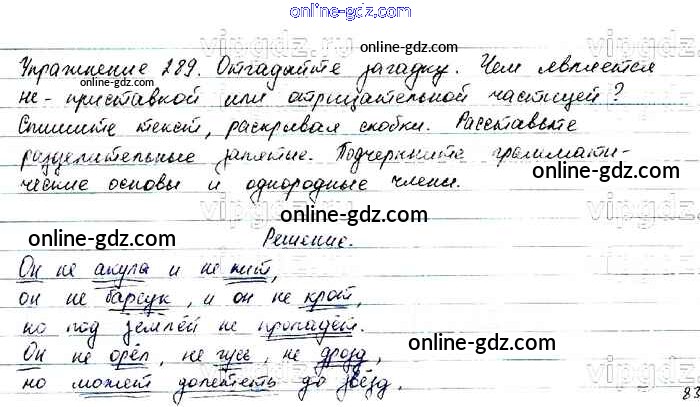 online-gdz.com
Упражнение 289. Отгадайте загадку. Чем является
не - приставкой или отрицательной частицей?
Спишите текст, раскрывая скобки. Расставьте
разделительные запятые. Подчеркните граммати-
ческие основы и однородные члены.
Решение.
Он не акула и не кит,
он не барсук, и он не крот,
но под землёй не пропадёт.
Он не орёл, не гусь, не дрозд,
но может долететь до звёзд.
83
vipgdz.ru
online-gdz.com
online-gdz.com
online-gdz.com
online-gdz.com
online-gdz.com
online-gdz.com
online-gdz.com
online-gdz.com